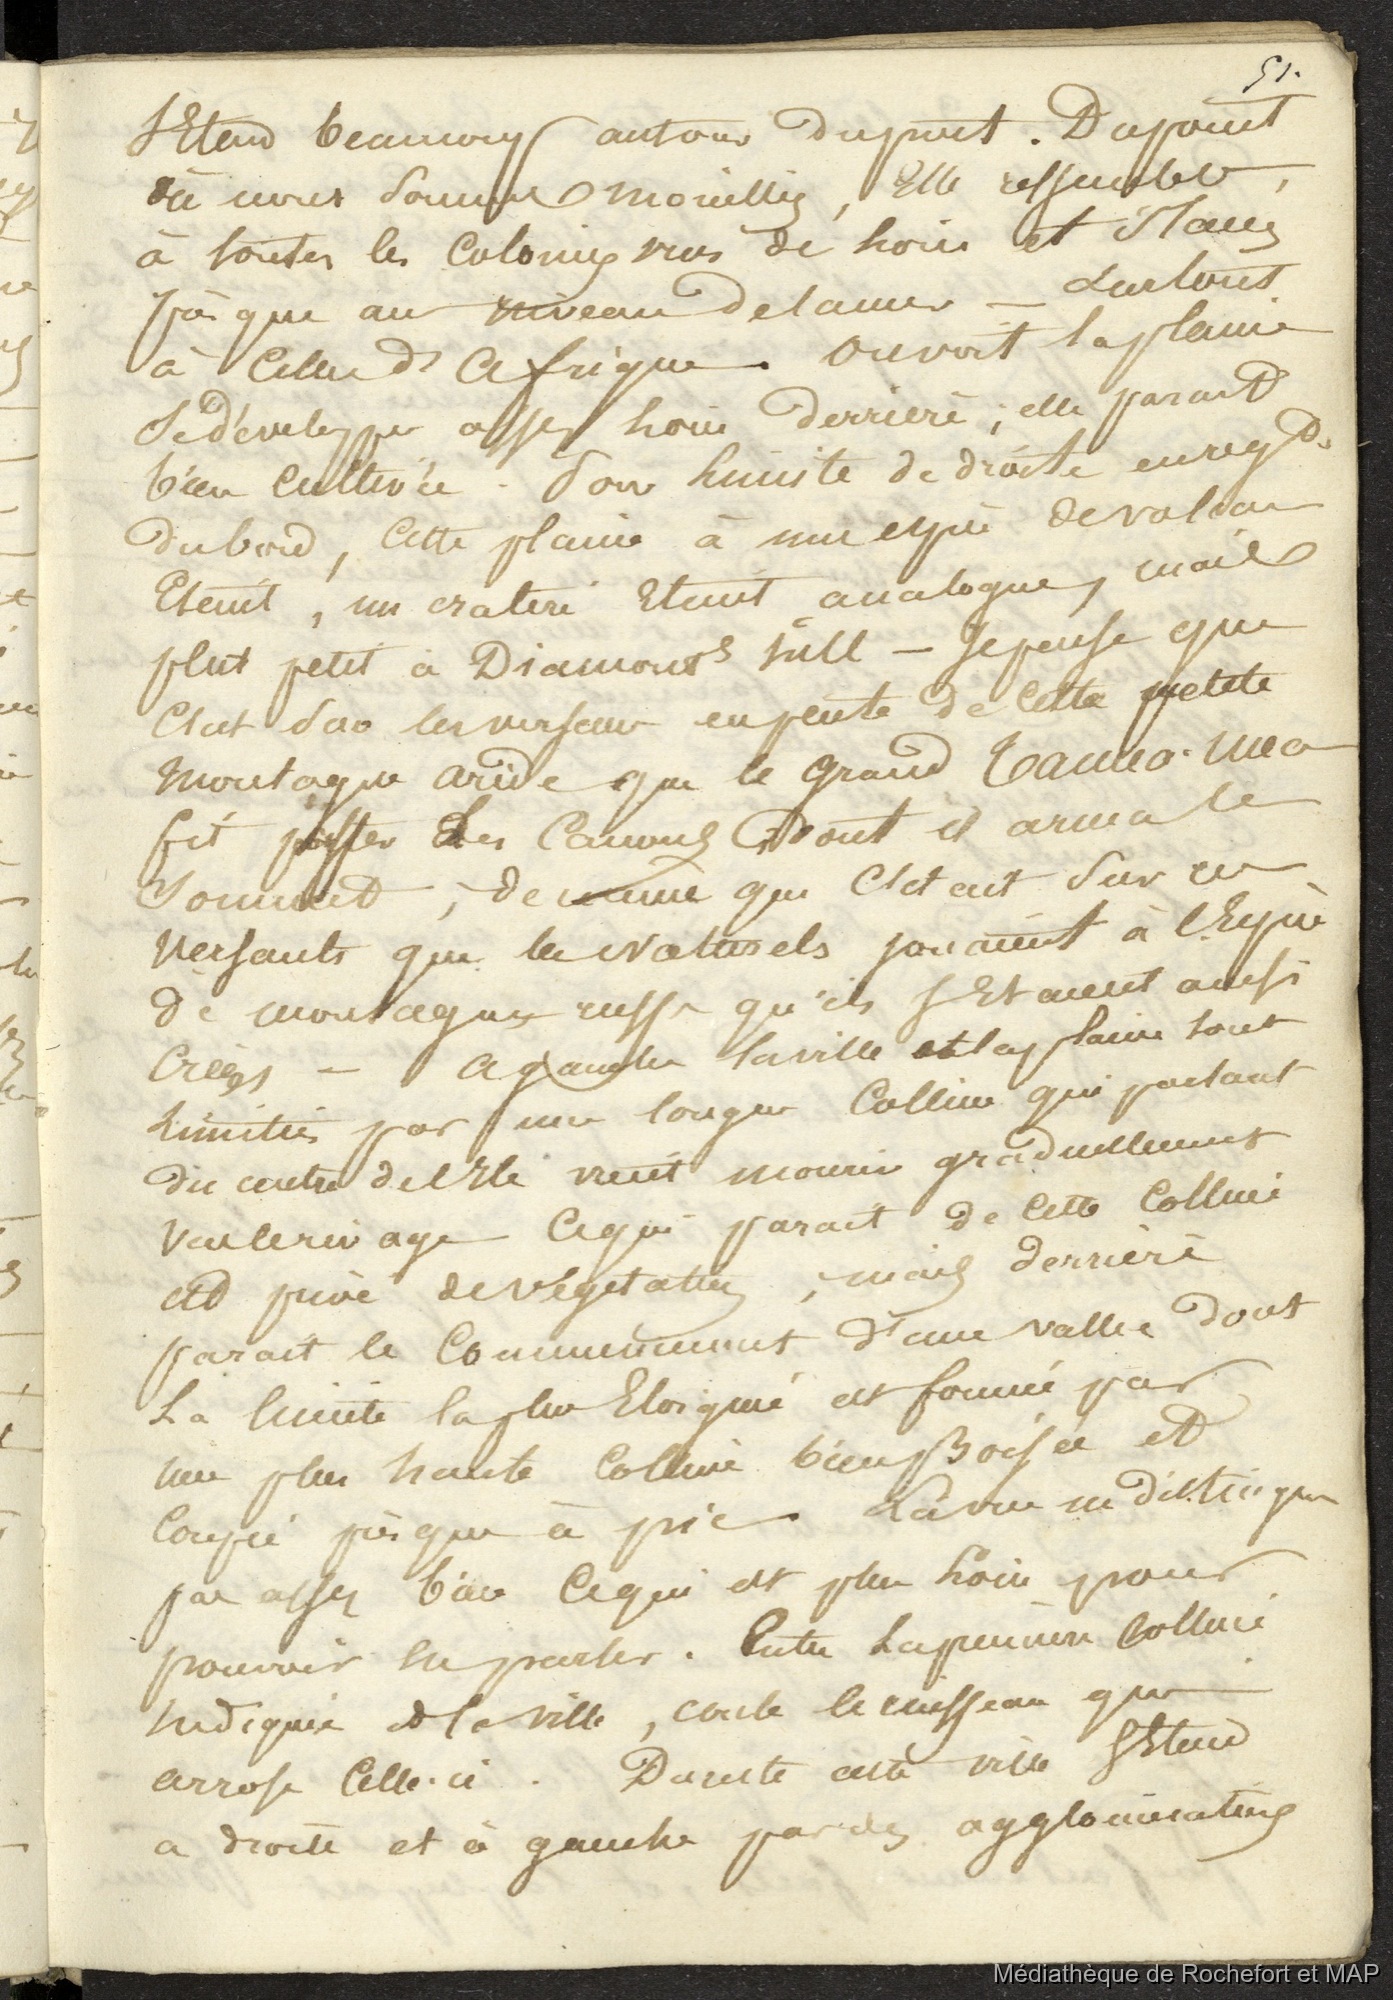 51.
s'Etend beaucoup autour du port. Du point
où nous sommes mouillés, Elle ressemble,
à toutes les Colonies vues de loin et étans
presque au niveau de la mer — surtout
à Celle d'Afrique. on voit la plaine
se développer assez loin derrière ; elle parait
bien cultivée. Pour limite de droite en reg.d
du bord, cette plaine à une espèce de volcan
Eteint, un cratère Eteint analogue, mais
plus petit à Diamont's hill — Je pense que
C'est sur les versans en pente de cette petite
montagne aride que le grand Tamea-mea
fit passer Les Canons Dont il arma le
Sommet, de même que C'etait sur ces
versants que les Naturels jouaient à l'Espèce
de montagnes russe qu'ils s'Etaient ainsi
Créées — A gauche la ville et la plaine sont
limitées par une longue Colline qui partant
du centre de l'Ile vient mourir graduellement
vers le rivage Ce qui parait de cette Colline
est privé de végétation, mais derrière
parait le Commencement d'une vallée dont
La limite la plus Eloignée est formée par
une plus haute Colline bien Boisée et
Coupée presque à pic. La vue ne distingue
pas assez bien Ce qui est plus loin pour
pouvoir en parler. Entre La première Colline
indiquée et la ville, coule le ruisseau qui
arrose Celle-ci. Du reste cette ville s'Etend
a droite et à gauche par des agglomérations
Médiathèque de Rochefort et MAP